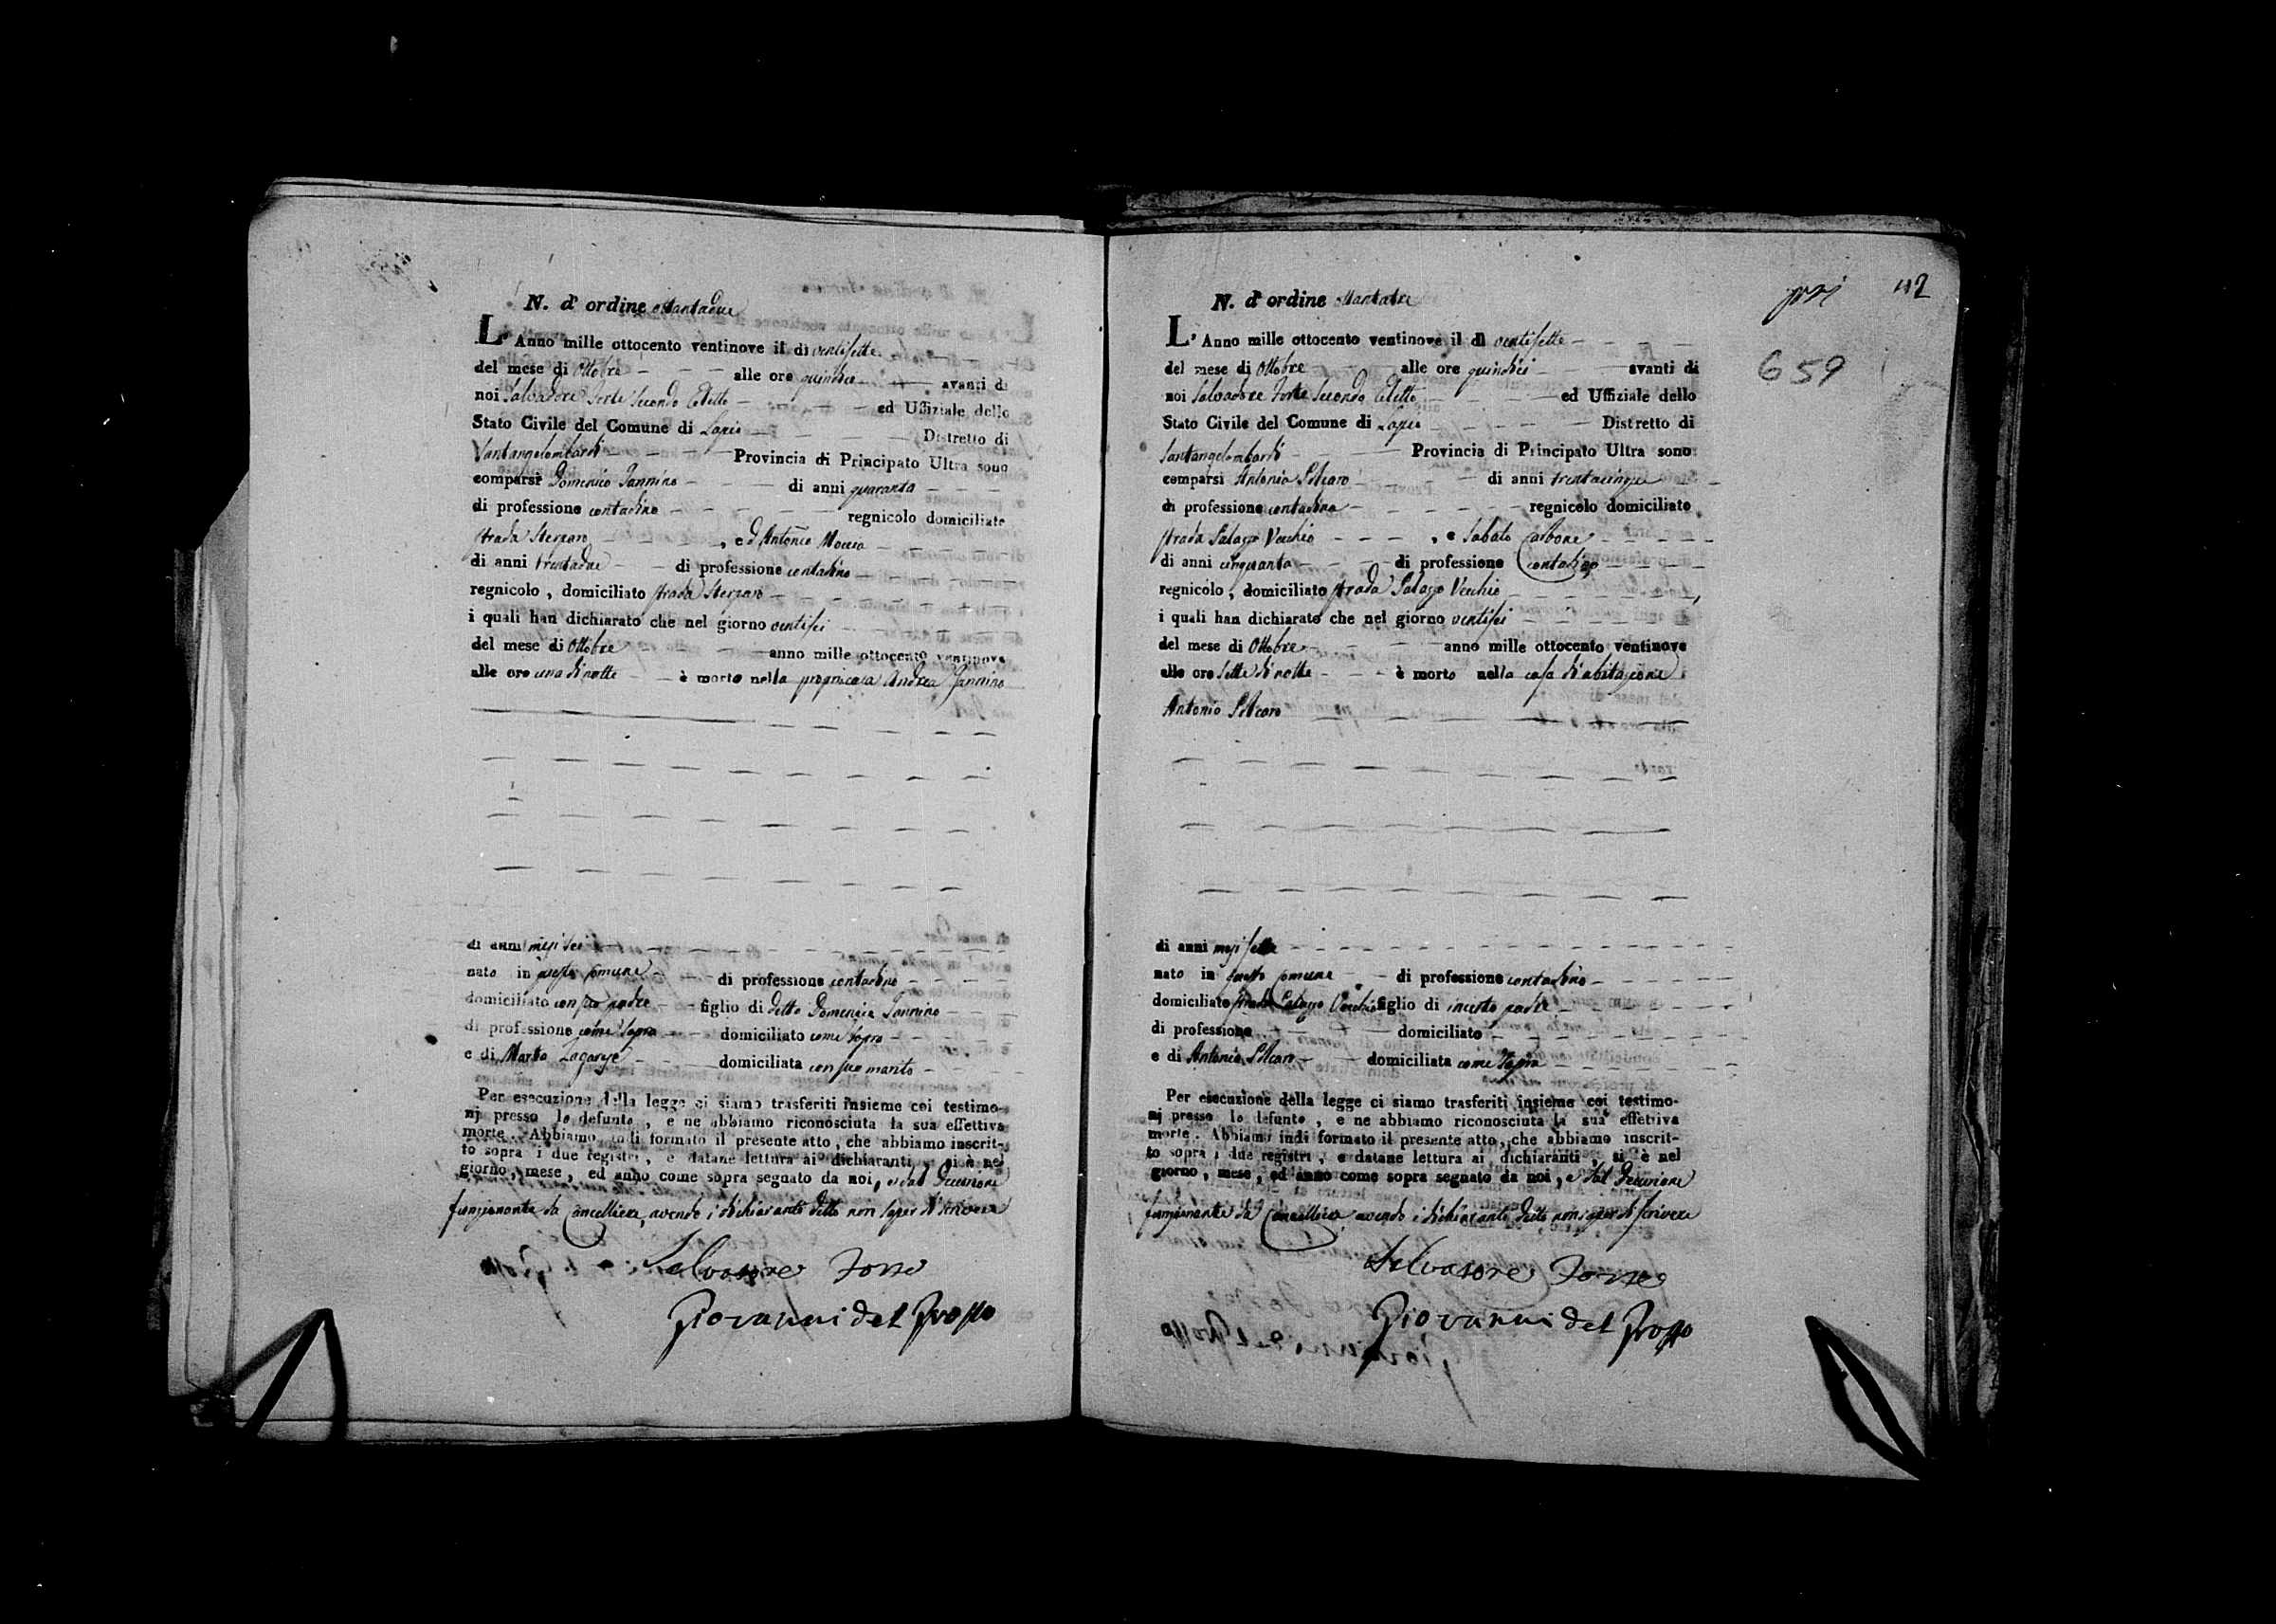 N. d' ordine ottantadue
L' Anno mille ottocento ventinove il dì ventisette
del mese di Ottobre alle ore quindici avanti di
noi Salvadore Forte Secondo Eletto ed Uffiziale dello
Stato Civile del Comune di Distretto di
Santangelombardi Provincia di Principato Ultra sono
comparsi Domenico Iannino di anni quaranta
di professione contadino regnicolo domiciliato
strada , ed Antonio
di anni trentadue di professione contadino
regnicolo , domiciliato strada
i quali han dichiarato che nel giorno ventisei
del mese di Ottobre anno mille ottocento ventinove
alle ore una di notte è morto nella propria casa Andrea Iannino
di anni mesi sei
nato in questo Comune di professione contadino
domiciliato con suo padre figlio di detto Domenico Iannino
di professione come sopra domiciliato come sopra
e di Marta domiciliata con suo marito
Per esecuzione della legge ci siamo trasferiti insieme coi testimo-
nj presso lo defunto , e ne abbiamo riconosciuta la sua effettiva
morte . Abbiamo indi formato il presente atto , che abbiamo inscrit-
to sopra i due registri , e datane lettura ai dichiaranti , si è nel
giorno , mese , ed anno come sopra segnato da noi , e dal Decurione
funzionante da Cancelliere, avendo i dichiaranti detto non saper di scrivere
Salvatore Forte
Giovanni del Grosso
112
659
N. d' ordine ottantatre
L' Anno mille ottocento ventinove il dì ventisette
del mese di Ottobre alle ore quindici avanti di
noi Salvadore Forte Secondo Eletto ed Uffiziale dello
Stato Civile del Comune di Distretto di
Santangelombardi Provincia di Principato Ultra sono
comparsi Antonio di anni trentacinque
di professione contadino regnicolo domiciliato
strada Palazzo Vecchio , e Sabato Carbone
di anni cinquanta di professione contadino
regnicolo , domiciliato strada Palazzo Vecchio
i quali han dichiarato che nel giorno ventisei
del mese di Ottobre anno mille ottocento ventinove
alle ore sette di notte è morto nella casa d'abitazione
Antonio
di anni mesi
nato in questo Comune di professione contadino
domiciliato strada Palazzo Vecchio figlio di incerto padre
di professione domiciliato
e di Antonia domiciliata come sopra
Per esecuzione della legge ci siamo trasferiti insieme coi testimo-
nj presso lo defunto , e ne abbiamo riconosciuta la sua effettiva
morte . Abbiamo indi formato il presente atto , che abbiamo inscrit-
to sopra i due registri , e datane lettura ai dichiaranti , si è nel
giorno , mese , ed anno come sopra segnato da noi , e dal Decurione
funzionante da Cancelliere avendo i dichiaranti detto non saper di scrivere
Salvatore Forte
Giovanni del Grosso